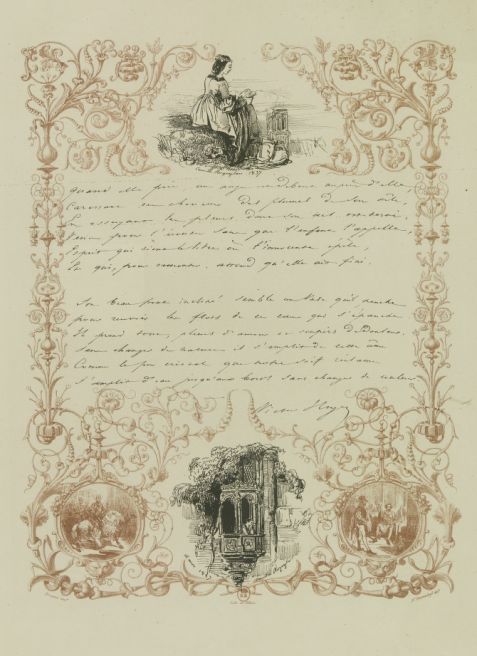 quand elle prie un ange est debout auprès d'elle,
Caressant ses cheveux des plumes de son aile,
En essuyant les pleurs dans son œil
Venu pour l'écouter sans que l'enfant l'appelle,
Esprit qui tient le livre où l'innocente épèle,
Et qui, pour remonter, attend qu'elle ait fini.
Son beau front incliné semble un vase qu'il penche
pour recevoir les flots de ce cœur qui s'épanche
Il prend tout, pleurs d'amour et soupirs de douleur,
Sans changer de nature il s'emplit de cette âme
Comme le pur cristal que notre soif réclame
S'emplit d'eau jusqu'aux bords sans changer de couleur
Victor Hugo
1837